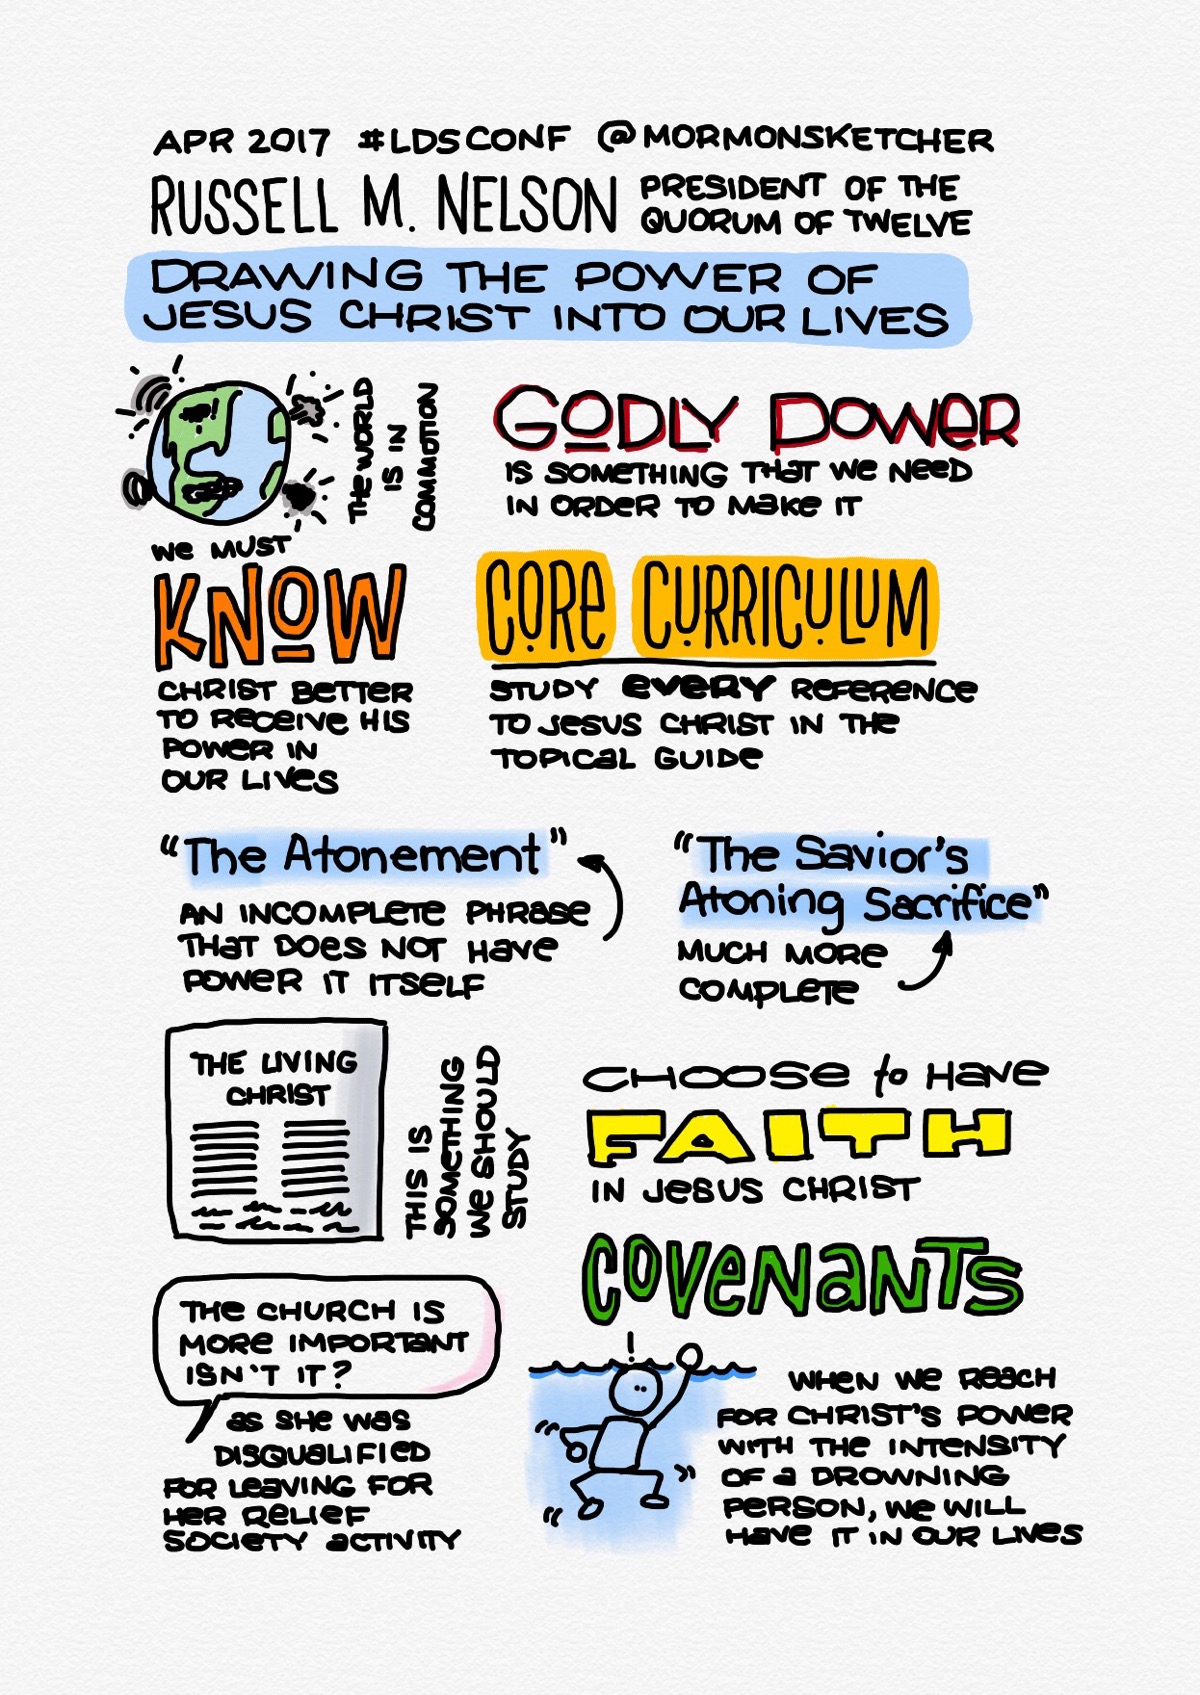 APR 2017 #LDSCONF @MORMONSKETCHER
RUSSELL M. NELSON PRESIDENT OF THE
QUORUM OF TWELVE
DRAWING THE POWER OF
JESUS CHRIST INTO OUR LIVES
THE WORLD
IS IN
COMMOTION
GODLY POWER
IS SOMETHING THAT WE NEED
IN ORDER TO MAKE IT
WE MUST
KNOW
CHRIST BETTER
TO RECEIVE HIS
POWER IN
OUR LIVES
CORE CURRICULUM
STUDY EVERY REFERENCE
TO JESUS CHRIST IN THE
TOPICAL GUIDE
"The Atonement"
AN INCOMPLETE PHRASE
THAT DOES NOT HAVE
POWER IT ITSELF
"The Savior's
Atoning Sacrifice"
MUCH MORE
COMPLETE
THE LIVING
CHRIST
THIS IS
SOMETHING
WE SHOULD
STUDY
CHOOSE to HAVE
FAITH
IN JESUS CHRIST
THE CHURCH IS
MORE IMPORTANT
ISN'T IT?
AS SHE WAS
DISQUALIFIED
FOR LEAVING FOR
HER RELIEF
SOCIETY ACTIVITY
COVENANTS
!
WHEN WE REACH
FOR CHRIST'S POWER
WITH THE INTENSITY
OF A DROWNING
PERSON, WE WILL
HAVE IT IN OUR LIVES